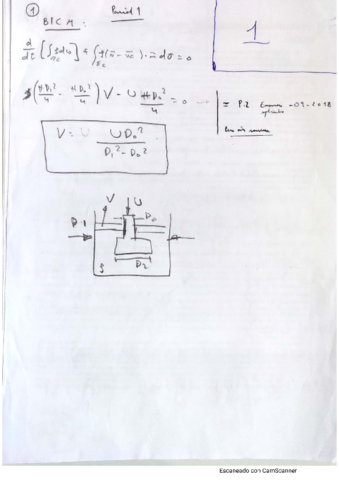 ① BICM: Parcial 1
1
d/dt [∫_Vc ρ dω] + ∫_Sc ρ(v̄ - v̄c)·n̄ dσ = 0
(π D₁²/4 - π D₀²/4) V - U π D₀²/4 = 0
= P.2 Examen -09-2018
V = U D₀² / (D₁² - D₀²)
V U
D1 D₀
D2
ρ
Escaneado con CamScanner